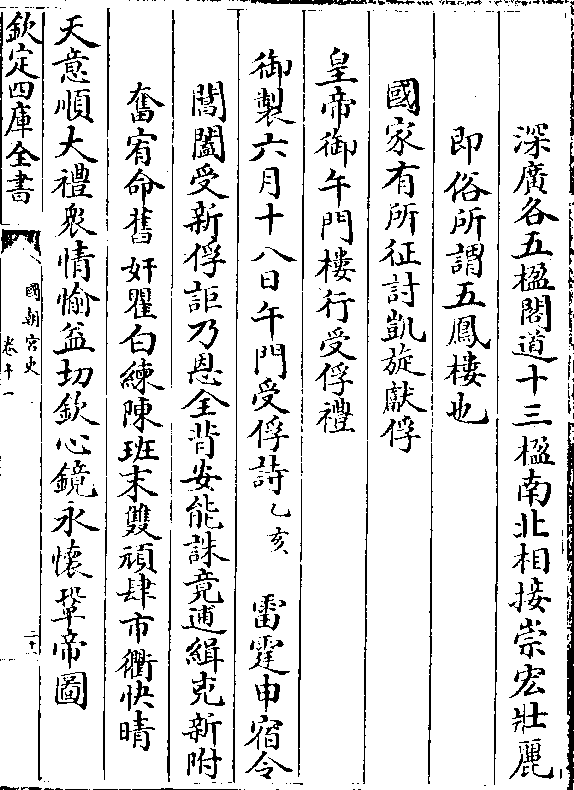 深廣各五楹閣道十三楹南北相接崇宏壯麗
即俗所謂五鳳樓也
國家有所征討凱旋獻俘
皇帝御午門樓行受俘禮
御製六月十八日午門受俘詩乙亥 雷霆申宿令
閶闔受新俘詎乃恩全背安能誅竟逋緝克新附
奮宥命舊奸瞿白練陳班末雙頑肆市衢快晴
天意順大禮衆情愉益切欽心鏡永懷鞏帝圖
欽定四庫全書
國朝宮史
卷十一